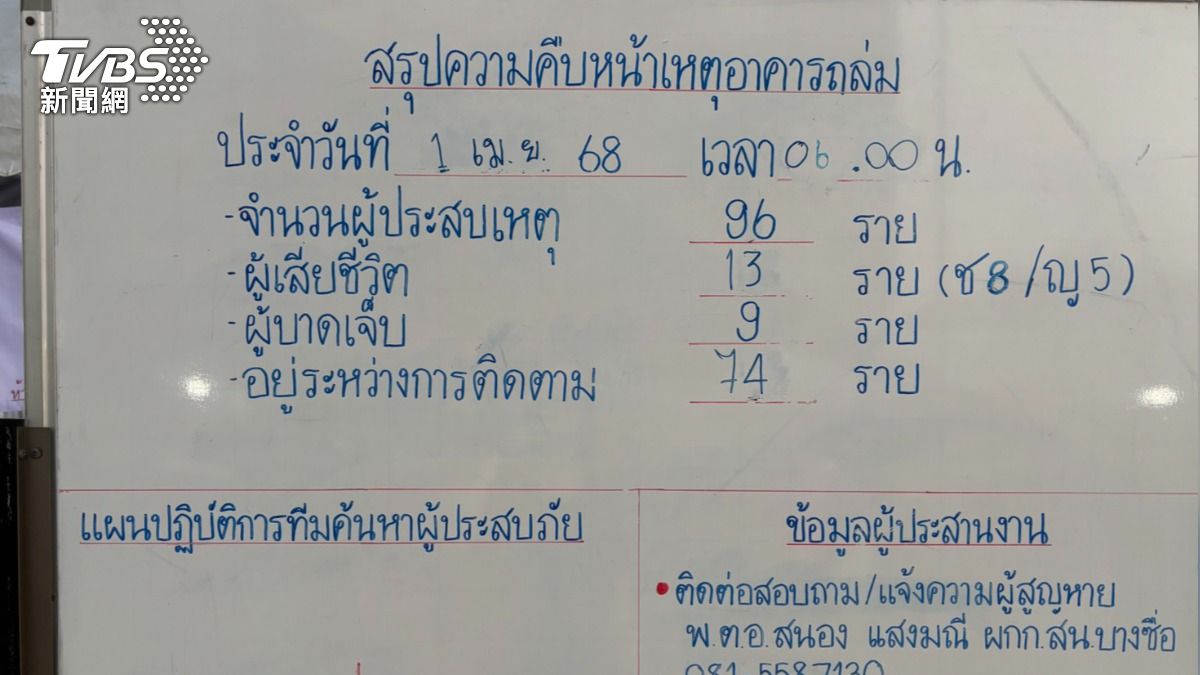 TVBS
新聞網
สรุปความคืบหน้าเหตุอาคารถล่ม
ประจำวันที่ 1 เม.ย. 68 เวลา 06.00 น.
-จำนวนผู้ประสบเหตุ 96 ราย
-ผู้เสียชีวิต 13 ราย (ช8/ญ5)
-ผู้บาดเจ็บ 9 ราย
-อยู่ระหว่างการติดตาม 74 ราย
แผนปฏิบัติการทีมค้นหาผู้ประสบภัย
ข้อมูลผู้ประสานงาน
• ติดต่อสอบถาม/แจ้งความผู้สูญหาย
พ.ต.อ.สนอง แสงมณี ผกก.สน.บางซื่อ
081 5587130